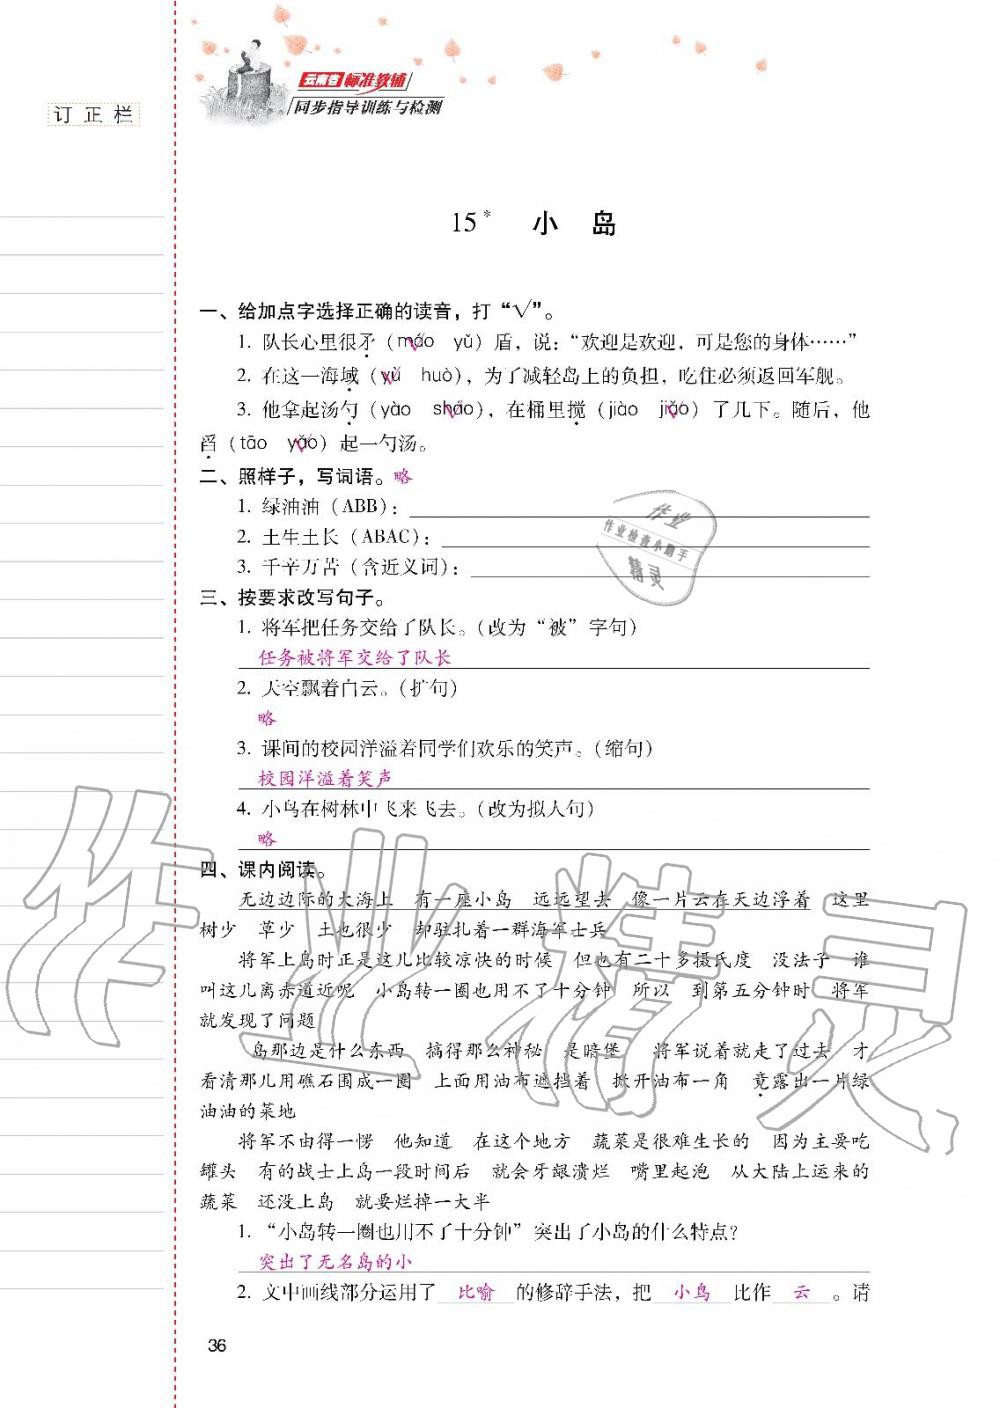 云南省标准教辅
同步指导训练与检测
订 正 栏
15* 小 岛
一、给加点字选择正确的读音，打“√”。
1. 队长心里很矛（máo yǔ）盾，说：“欢迎是欢迎，可是您的身体……”
2. 在这一海域（yù huò），为了减轻岛上的负担，吃住必须返回军舰。
3. 他拿起汤勺（yào sháo），在桶里搅（jiào jiǎo）了几下。随后，他
舀（tāo yǎo）起一勺汤。
二、照样子，写词语。略
1. 绿油油（ABB）：
2. 土生土长（ABAC）：
3. 千辛万苦（含近义词）：
三、按要求改写句子。
1. 将军把任务交给了队长。（改为“被”字句）
任务被将军交给了队长
2. 天空飘着白云。（扩句）
略
3. 课间的校园洋溢着同学们欢乐的笑声。（缩句）
校园洋溢着笑声
4. 小鸟在树林中飞来飞去。（改为拟人句）
略
四、课内阅读。
无边边际的大海上 有一座小岛 远远望去 像一片云在天边浮着 这里
树少 草少 土也很少 却驻扎着一群海军士兵
将军上岛时正是这儿比较凉快的时候 但也有二十多摄氏度 没法子 谁
叫这儿离赤道近呢 小岛转一圈也用不了十分钟 所以 到第五分钟时 将军
就发现了问题
岛那边是什么东西 搞得那么神秘 是暗堡 将军说着就走了过去 才
看清那儿用礁石围成一圈 上面用油布遮挡着 掀开油布一角 竟露出一片绿
油油的菜地
将军不由得一愣 他知道 在这个地方 蔬菜是很难生长的 因为主要吃
罐头 有的战士上岛一段时间后 就会牙龈溃烂 嘴里起泡 从大陆上运来的
蔬菜 还没上岛 就要烂掉一大半
1. “小岛转一圈也用不了十分钟”突出了小岛的什么特点？
突出了无名岛的小
2. 文中画线部分运用了 比喻 的修辞手法，把 小鸟 比作 云 。请
36
作业
作业检查小助手
精灵
作业精灵